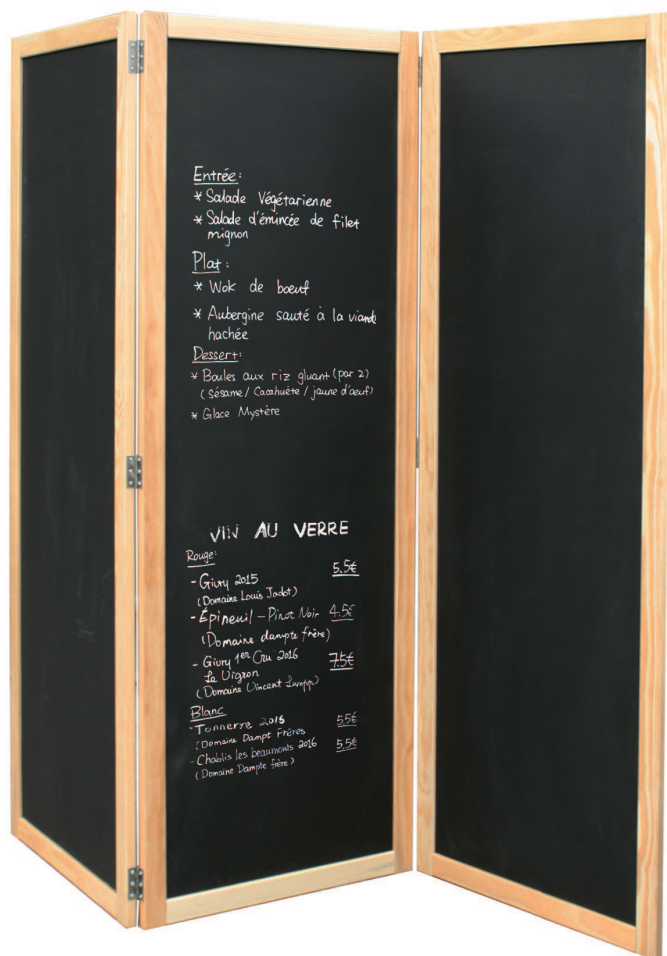 Entrée:
* Salade Végétarienne
* Salade d'émincée de filet
mignon
Plat:
* Wok de boeuf
* Aubergine sauté à la viande
hachée
Dessert:
* Boules aux riz gluant (par 2)
(Sésame / Cacahuète / jaune d'œuf)
* Glace Mystère
VIN AU VERRE
Rouge:
- Givry 2015 5.5€
(Domaine Louis Jadot)
- Épineuil - Pinot Noir 4.5€
(Domaine dampte frère)
- Givry 1er Cru 2016 7.5€
Le Vigron
(Domaine Vincent Lumpp)
Blanc
- Tonnerre 2015 5.5€
(Domaine Dampt Frères
- Chablis les beaumonts 2016 5.5€
(Domaine Dampte frère)